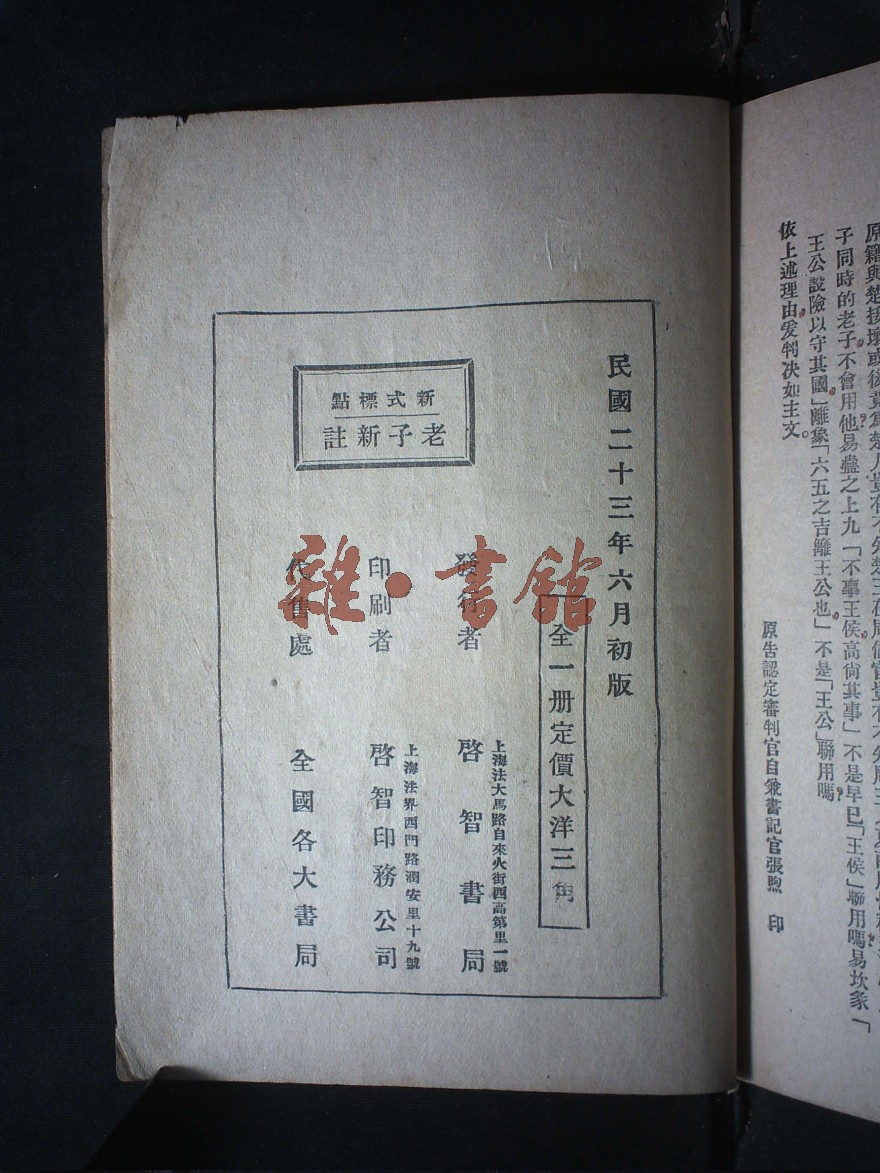 子同時的老子不會用他易蠱之上九「不事王侯高尙其事」不是早已「王侯」聯用嗎易坎彖「
王公設險以守其國」離象「六五之吉離王公也」不是「王公」聯用嗎
依上述理由爰判决如主文
原告認定審判官自兼書記官張煦 印
民國二十三年六月初版
全一册定價大洋三角
新式標點
老子新註
發行者
上海法大馬路自來火街西高第里一號
啓智書局
印刷者
上海法界西門路潤安里十九號
啓智印務公司
代售處
全國各大書局
雜·書館